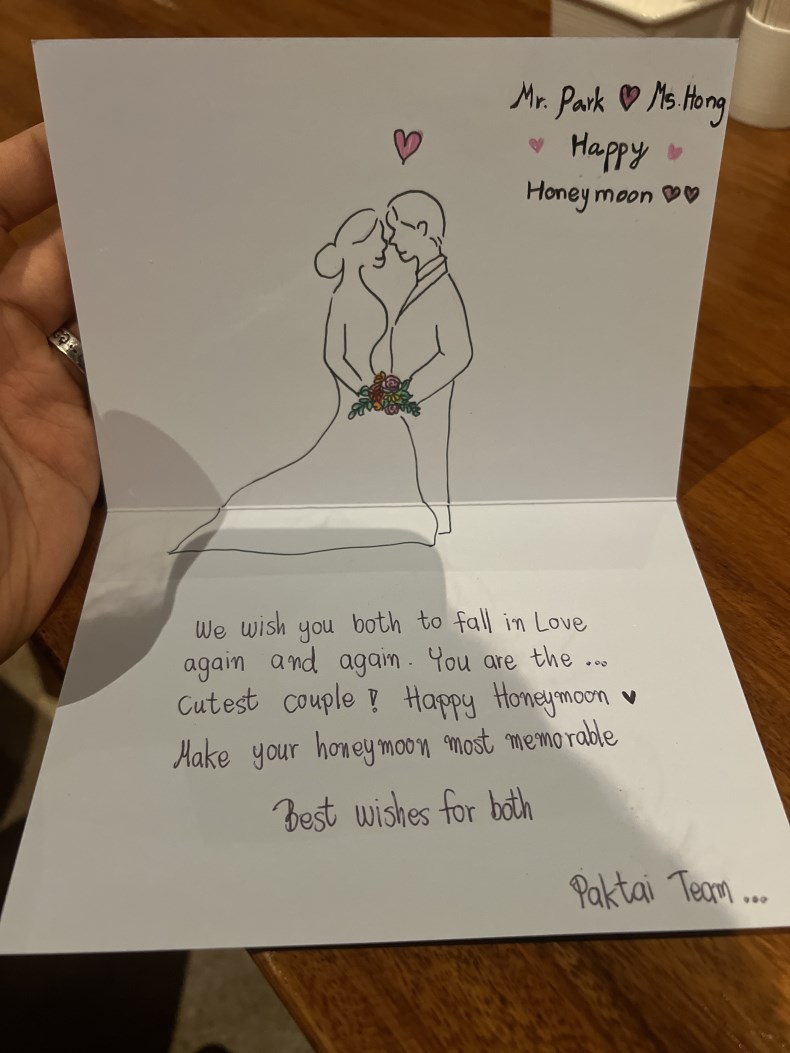 Mr. Park ♥ Ms. Hong
♥ Happy ♥
Honeymoon ♥♥
We wish you both to fall in Love
again and again. You are the ...
Cutest couple! Happy Honeymoon ♥
Make your honeymoon most memorable
Best wishes for both
Paktai Team ...